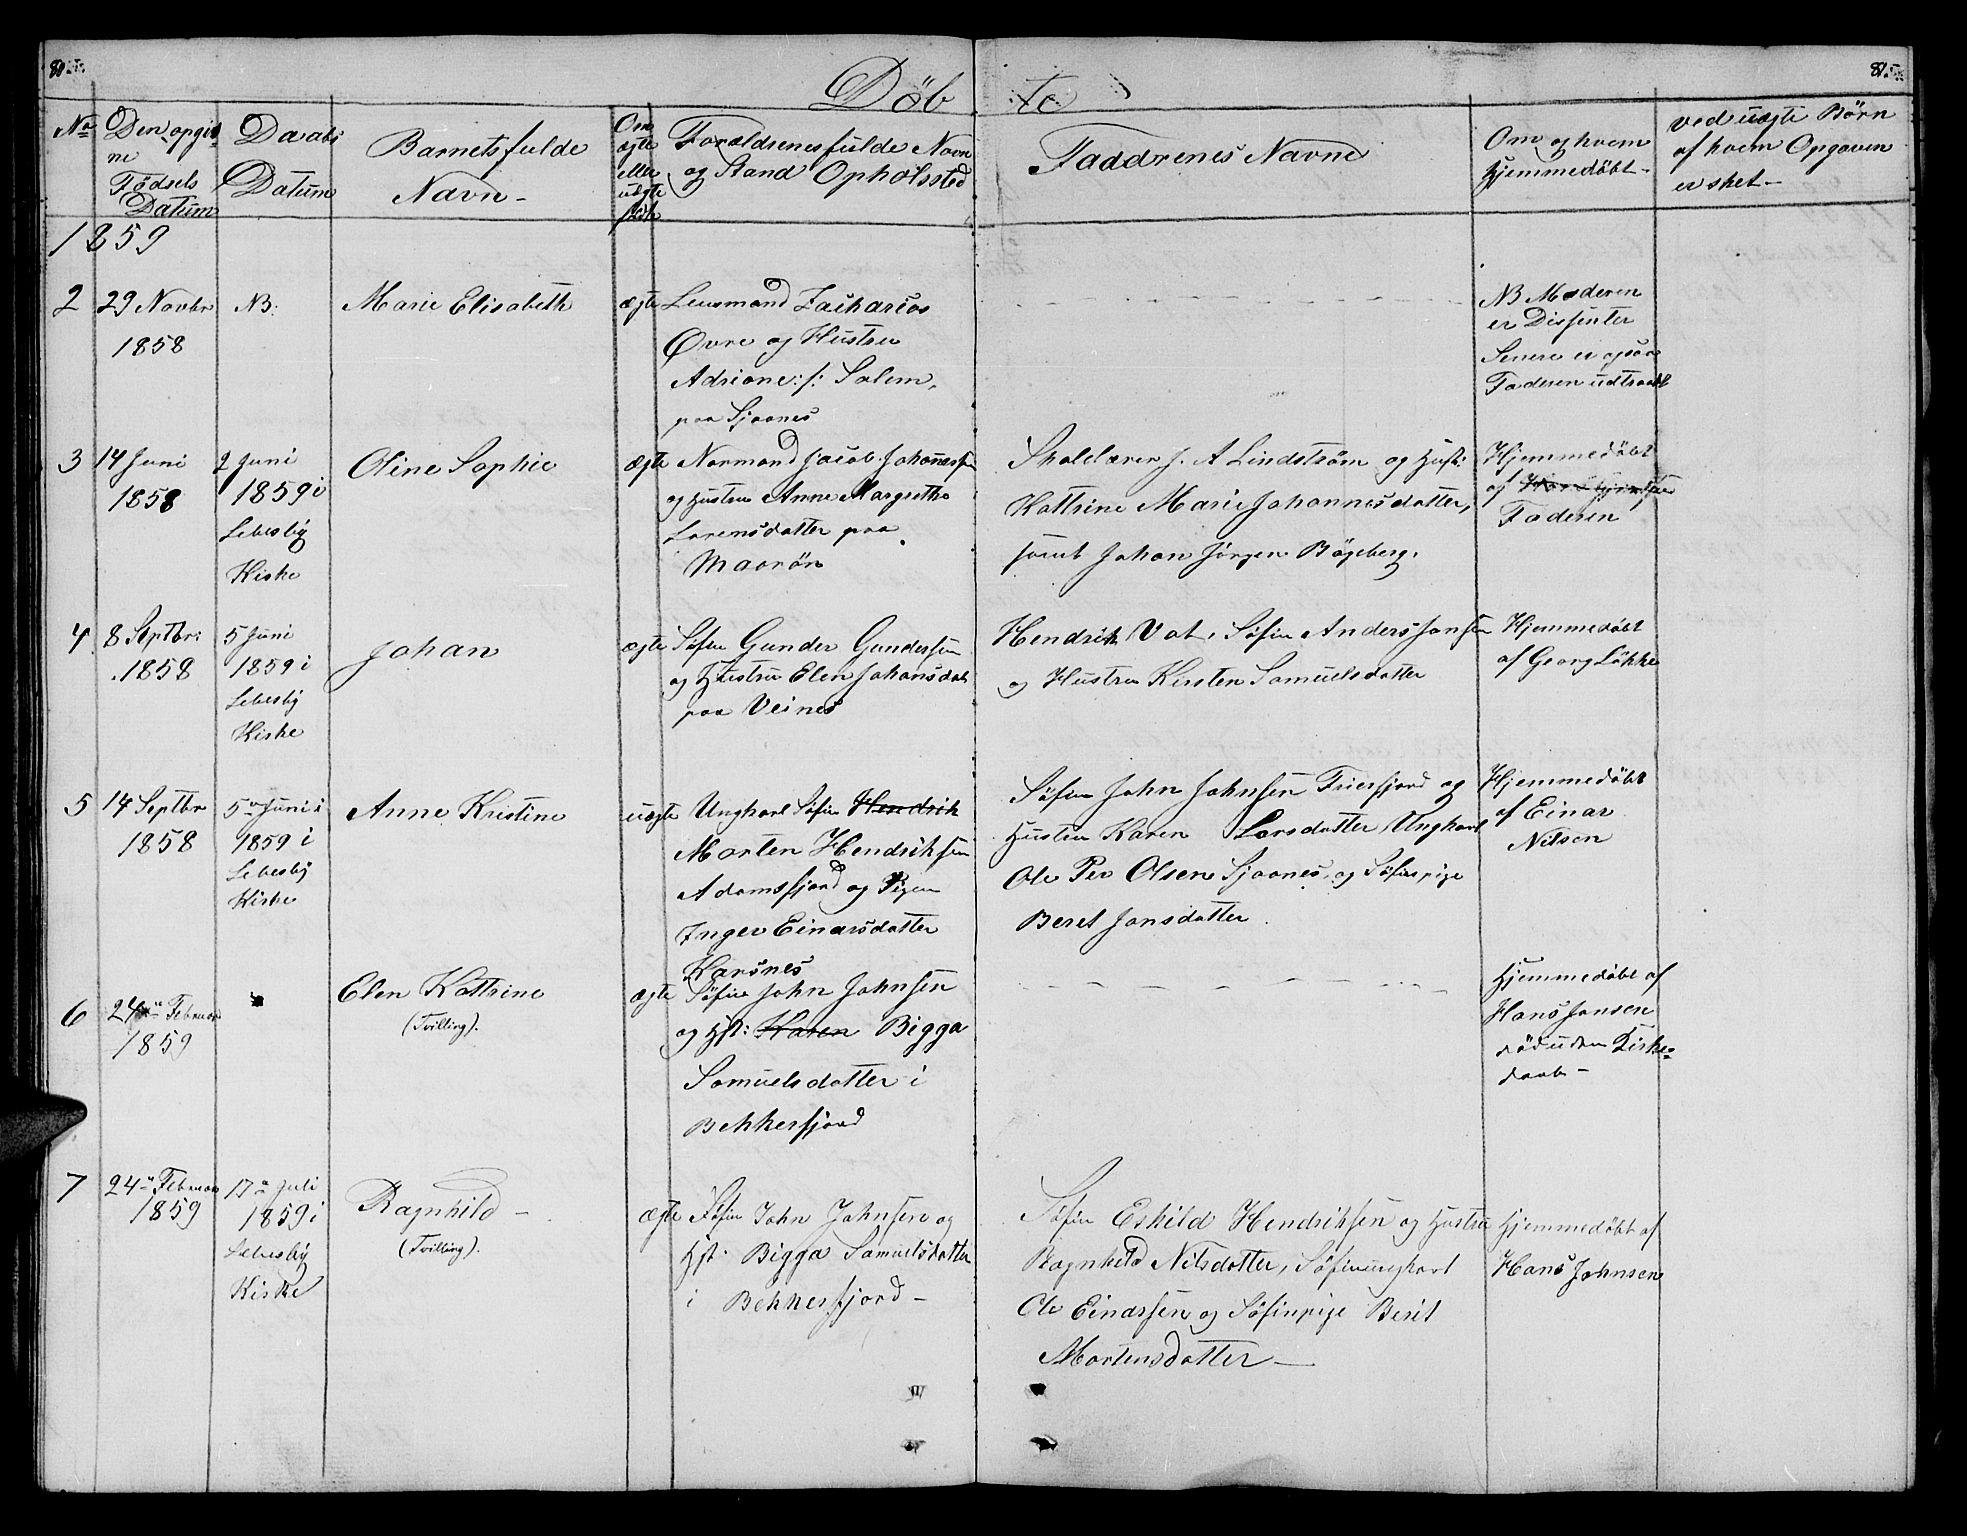 80.
81.
Döb te
No
Den opgivne Fødsels Datum
Daabs Datum
Barnets fulde Navn -
Om ægte eller uægte født
Forældrenes fulde Navn og Stand Opholssted
Faddrenes Navne
Om og hvem Hjemmedöbt -
ved uægte Börn af hvem Opgaven er sket -
1859
2
29 Novbr
1858
NB:
Marie Elisabeth
ægte
Lensmand Zacharias
Øvre og Hustru
Adriane f: Salem,
paa Sjaanes
NB Moderen
er Dissenter
Senere er ogsaa
Faderen udtraadt
3
14 Juni
1858
2 Juni
1859 i
Lebesby
Kirke
Oline Sophie
ægte
Normand Jacob Johannessen
og Hustru Anne Margrethe
Lorensdatter paa
Maarön
Skolelærer J. A Lindström og Hust:
Kattrine Marie Johannesdatter,
samt Johan Jörgen Bögeberg.
Hjemmedöbt
af
Faderen
4
8 Septbr:
1858
5 Juni
1859 i
Lebesby
Kirke
Johan
ægte
Söfin Gunder Gundersen
og Hustru Elen Johansdat
paa Veines
Hendrik Vat, Söfin Anders Jansen
og Hustru Kirsten Samuelsdatter
Hjemmedöbt
af Georg Lökke
5
14 Septbr
1858
5te Juni i
1859 i
Lebesby
Kirke
Anne Kristine
uægte
Ungkarl Söfin Hendrik
Morten Hendriksen
Adamsfjord og Pigen
Inger Einarsdatter
Karsnes
Söfin John Johnsen Friersfjord og
Hustru Karen Larsdatter, Ungkarl
Ole Per Olsen Sjaanes, og Söfinspige
Beret Jansdatter.
Hjemmedöbt
af Einar
Nilsen
6
24de Februar
1859
Elen Kattrine
(Tvilling).
ægte
Söfin John Johnsen
og Hst: Karen Bigga
Samuelsdatter i
Bekkerfjord
Hjemmedöbt af
Hans Jansen
död uden Kirke=
daab -
7
24de Februar
1859
17de Juli
1859 i
Lebesby
Kirke
Ragnhild -
(Tvilling).
ægte
Söfin John Johnsen og
Hst. Bigga Samuelsdatter
i Bekkerfjord -
Söfin Eskild Hendriksen og Hustru
Ragnhild Nilsdatter, Söfinungkarl
Ole Einarsen og Söfinpige Berit
Mortensdatter -
Hjemmedöbt af
Hans Johnsen